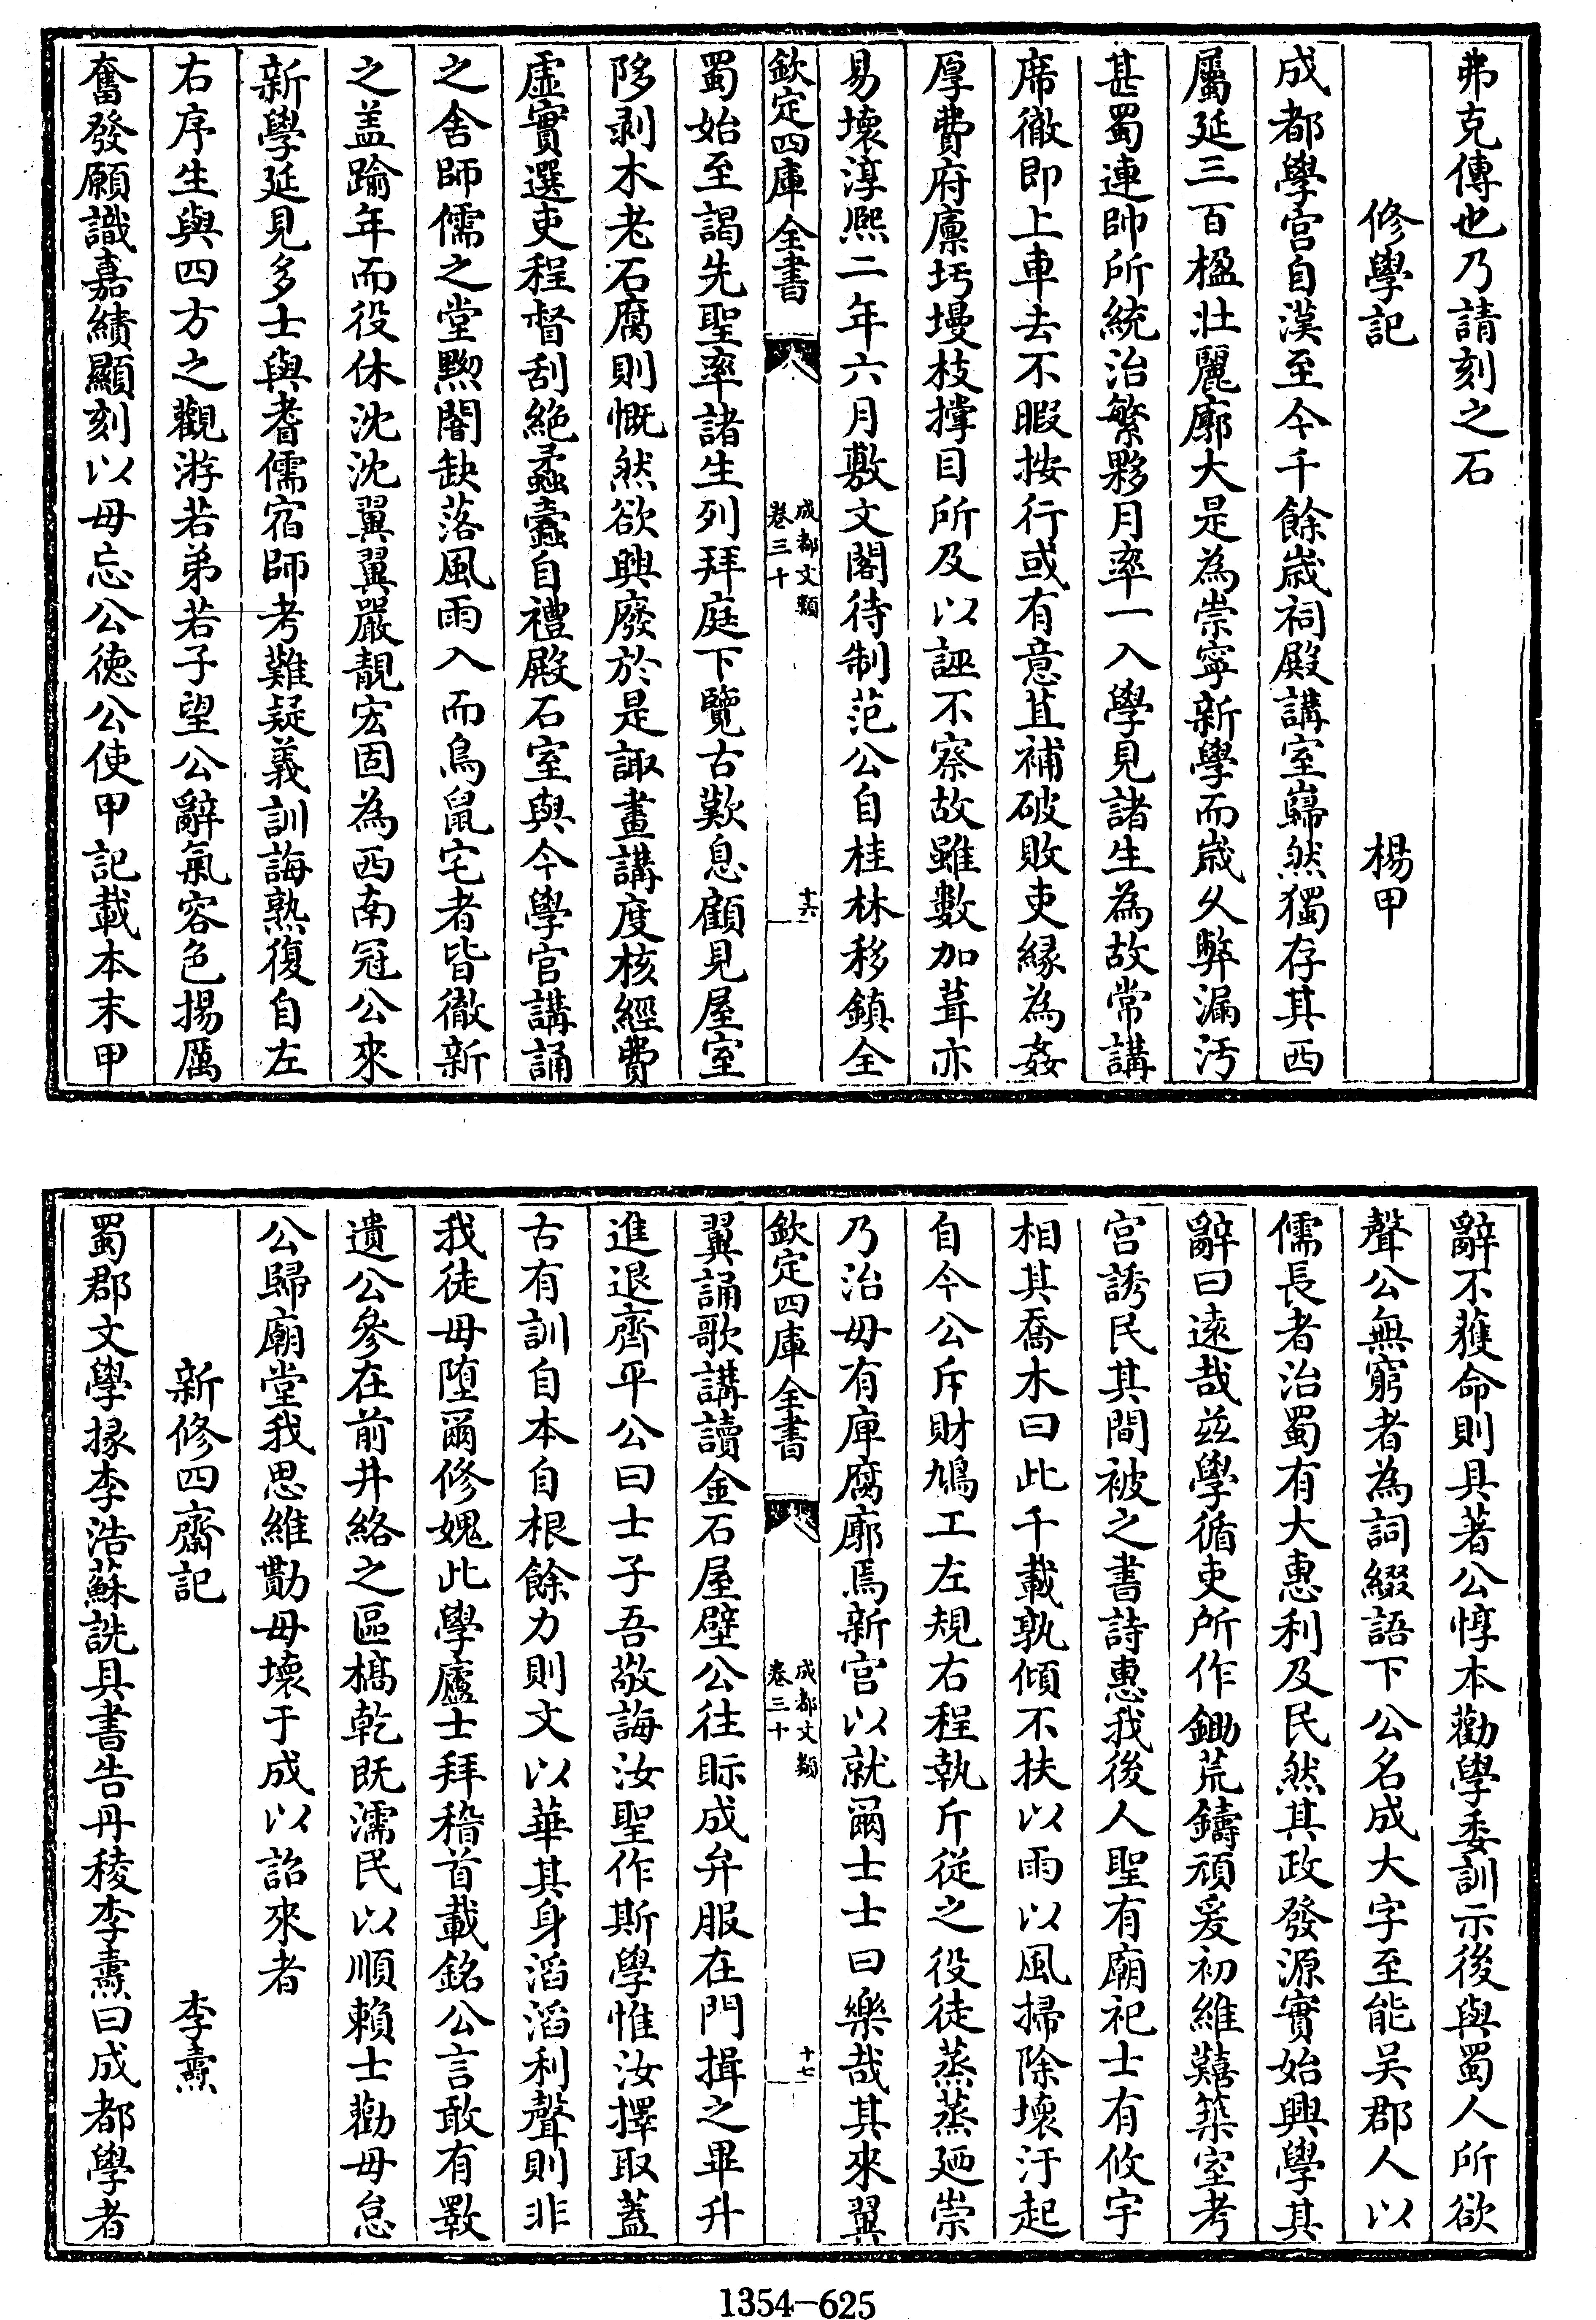 弗克傳也乃請刻之石
修學記 楊甲
成都學宫自漢至今千餘歳祠殿講室巋然獨存其西
屬延三百楹壯麗廓大是為崇寜新學而歳乆弊漏汚
甚蜀連帥所統治繁夥月率一入學見諸生為故常講
席徹即上車去不暇按行或有意苴補破敗吏縁為姦
厚費府廩圬墁枝撑目所及以誣不察故雖數加葺亦
易壊淳熈二年六月敷文閣待制范公自桂林移鎮全
欽定四庫全書
成都文類
卷三十
十六
蜀始至謁先聖率諸生列拜庭下覽古歎息顧見屋室
陊剥木老石腐則慨然欲興廢於是諏畫講度核經費
虚實選吏程督刮絶蟊蠧自禮殿石室與今學官講誦
之舍師儒之堂黝闇缺落風雨入而鳥鼠宅者皆徹新
之盖踰年而役休沈沈翼翼嚴靚宏固為西南冠公來
新學延見多士與耆儒宿師考難疑義訓誨熟復自左
右序生與四方之觀游若弟若子望公辭氣容色揚厲
奮發願識嘉績顯刻以毋忘公徳公使甲記載本末甲
辭不䕶命則具著公惇本勸學委訓示後與蜀人所欲
聲公無窮者為詞綴語下公名成大字至能吴郡人以
儒長者治蜀有大惠利及民然其政發源實始興學其
辭曰遠哉兹學循吏所作鋤荒鑄頑爰初維囏築室考
宫誘民其間被之書詩惠我後人聖有廟祀士有攸宇
相其喬木曰此千載孰傾不扶以雨以風掃除壊汙起
自今公斥財鳩工左規右程執斤從之役徒蒸蒸廼崇
乃治毋有庳腐廓焉新宫以就爾士士曰樂哉其來翼
欽定四庫全書
成都文類
卷三十
十七
翼誦歌講讀金石屋壁公往眎成弁服在門揖之畢升
進退齊平公曰士子吾敬誨汝聖作斯學惟汝擇取蓋
古有訓自本自根餘力則文以華其身滔滔利聲則非
我徒毋堕爾修媿此學廬士拜稽首載銘公言敢有斁
遺公參在前井絡之區槁乾既濡民以順賴士勸毋怠
公歸廟堂我思維勩毋壊于成以詔來者
新修四齋記 李燾
蜀郡文學掾李浩蘇詵具書告丹稜李燾曰成都學者
1354-625